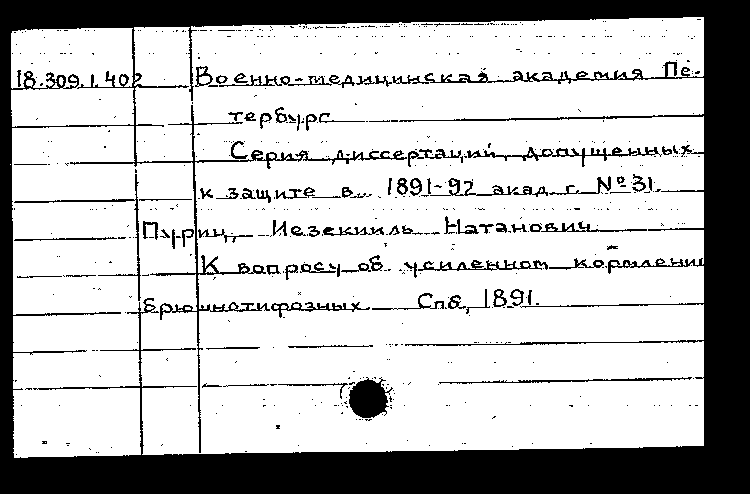 18.309.1.402 Военно-медицинская академия Пе-
тербург
Серия диссертаций, допущенных
к защите в 1891-92 акад. г. № 31.
Пуриц, Иезекииль Натанович
К вопросу об усиленном кормлении
брюшнотифозных Спб, 1891.